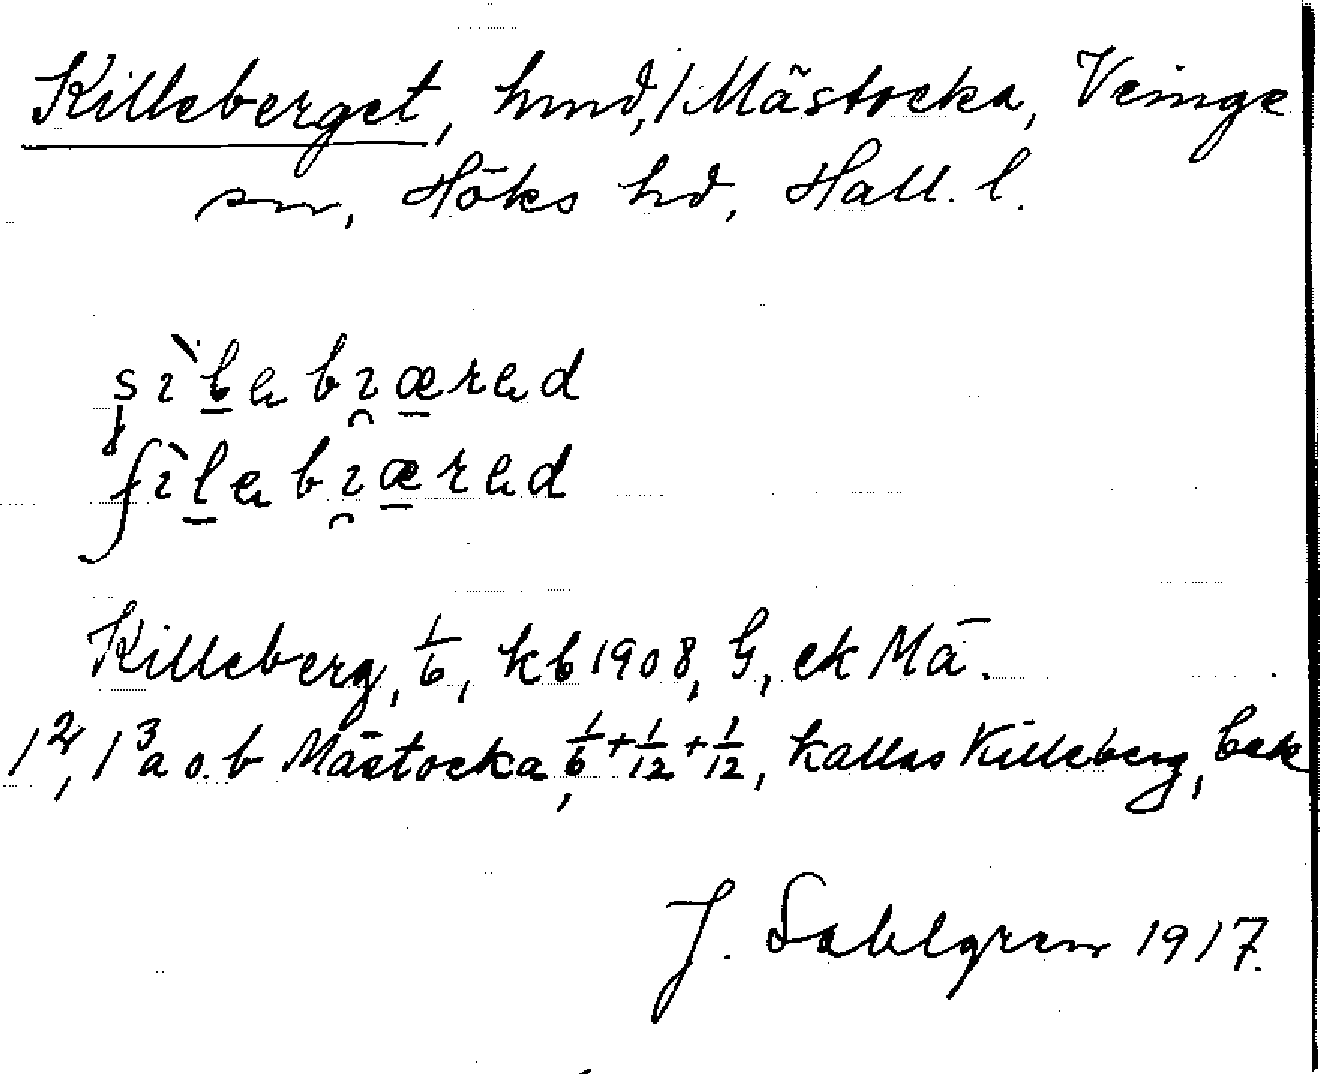 Killeberget, hmd, / Mästocka, Veinge
sn, Höks hd, Hall. l.
Killeberg, 1/6, kb 1908, G, ek Mä.
1², 1³a o. b Mästocka, 1/6 + 1/12 + 1/12, kallas Killeberg,
J. Sahlgren 1917.